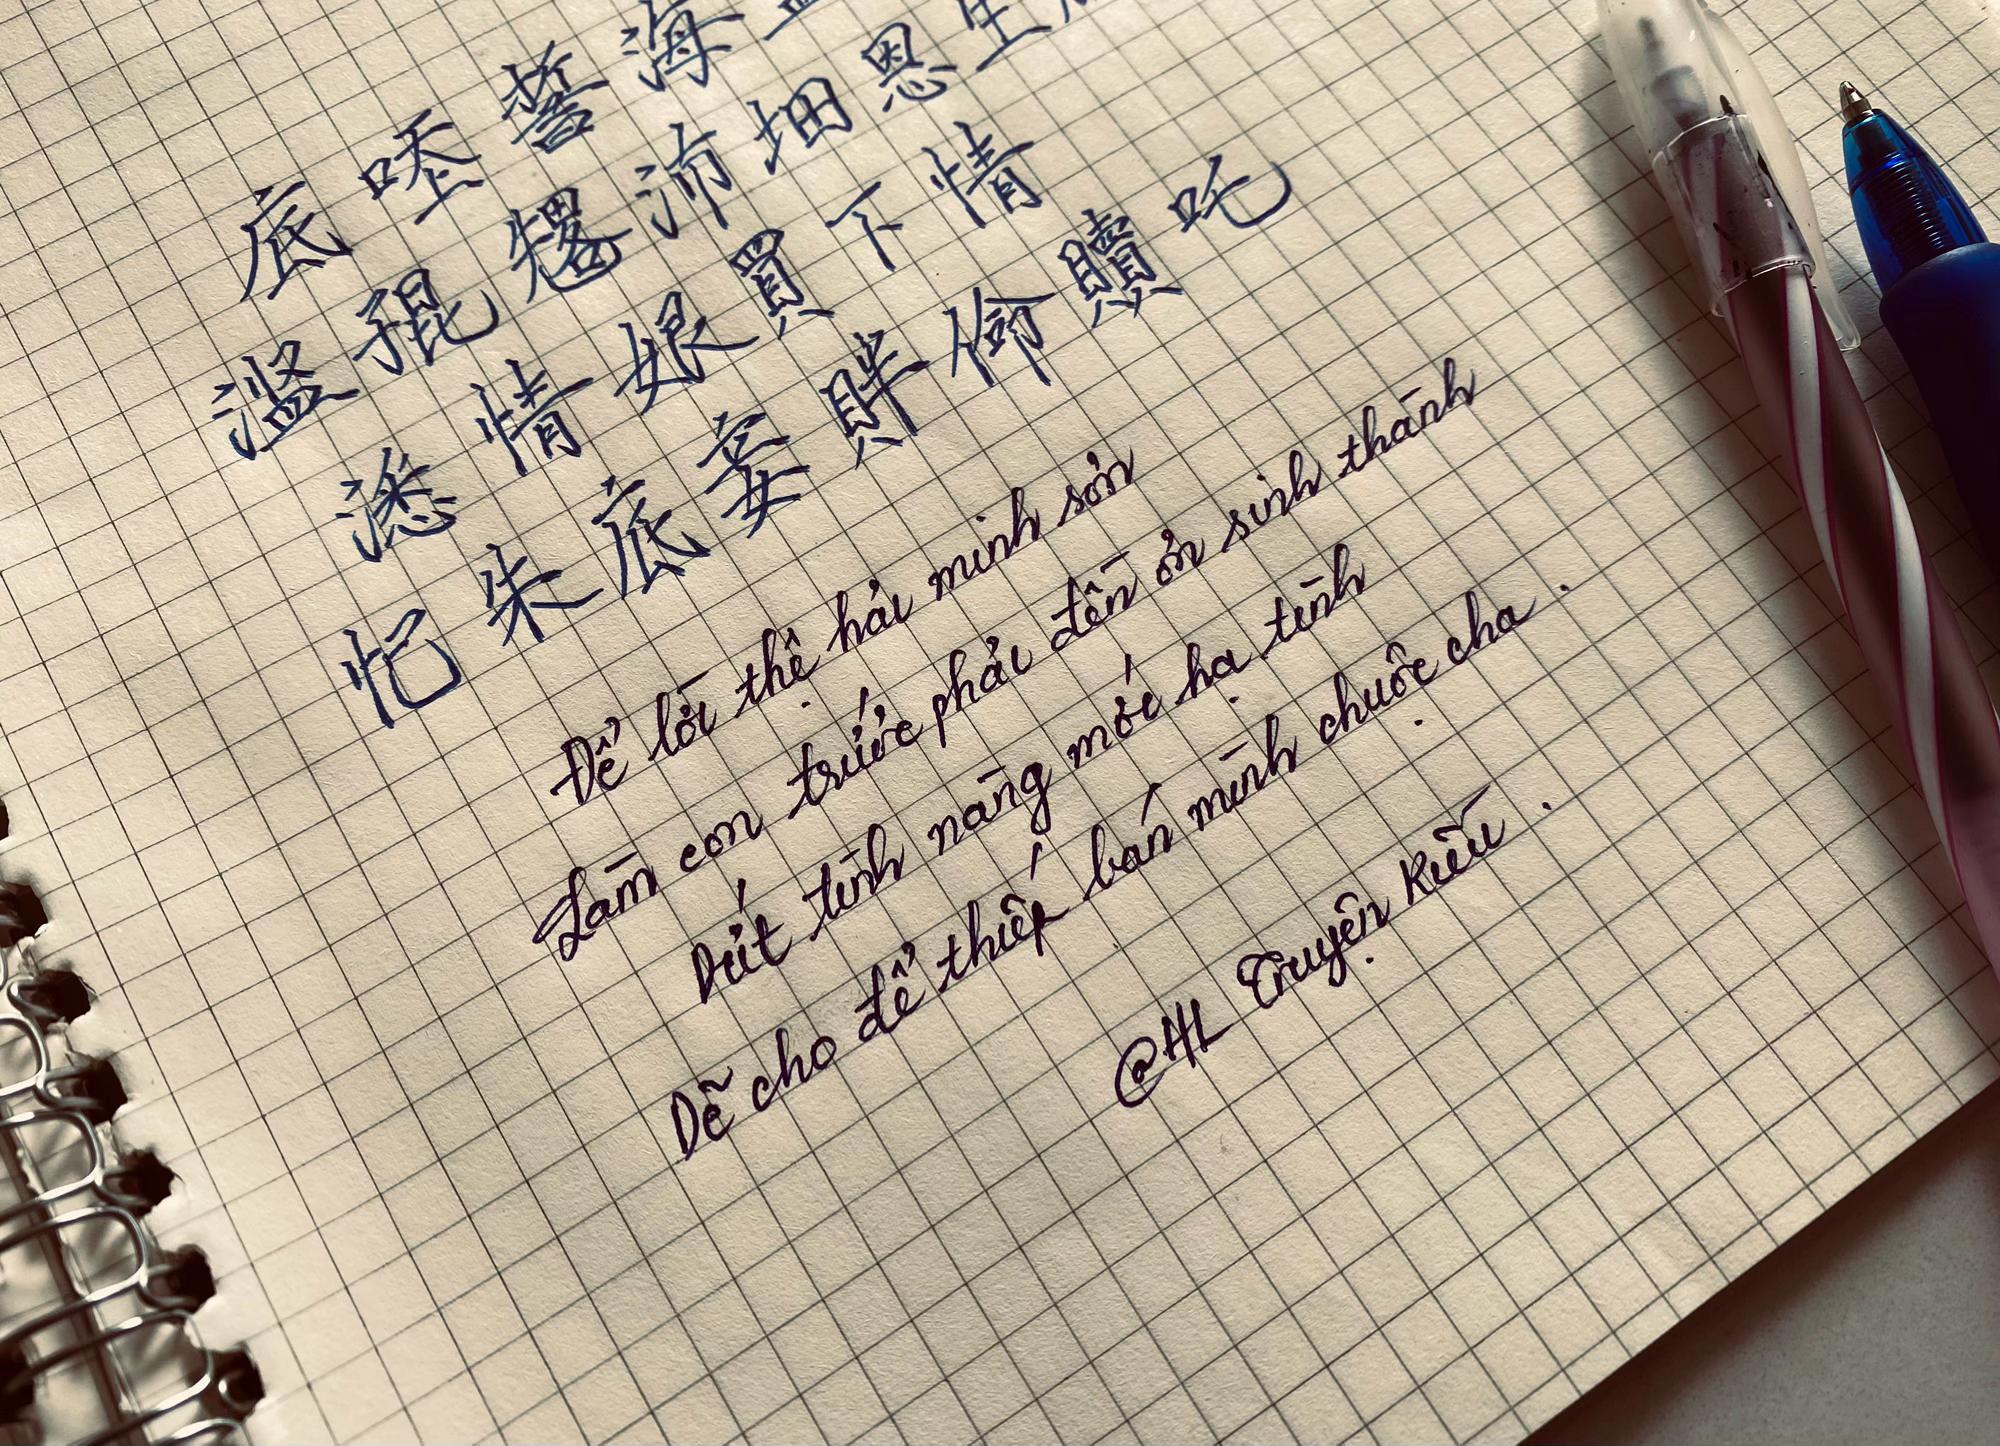 底㗂誓海盟
濫𡥵𠓀沛坦恩生
濾情娘買下情
忋朱底妾胖命贖吒
Để lời thệ hải minh sơn
Làm con trước phải đền ơn sinh thành
Dứt tình nàng mới hạ tình
Dẽ cho để thiếp bán mình chuộc cha.
@HL Truyện Kiều.